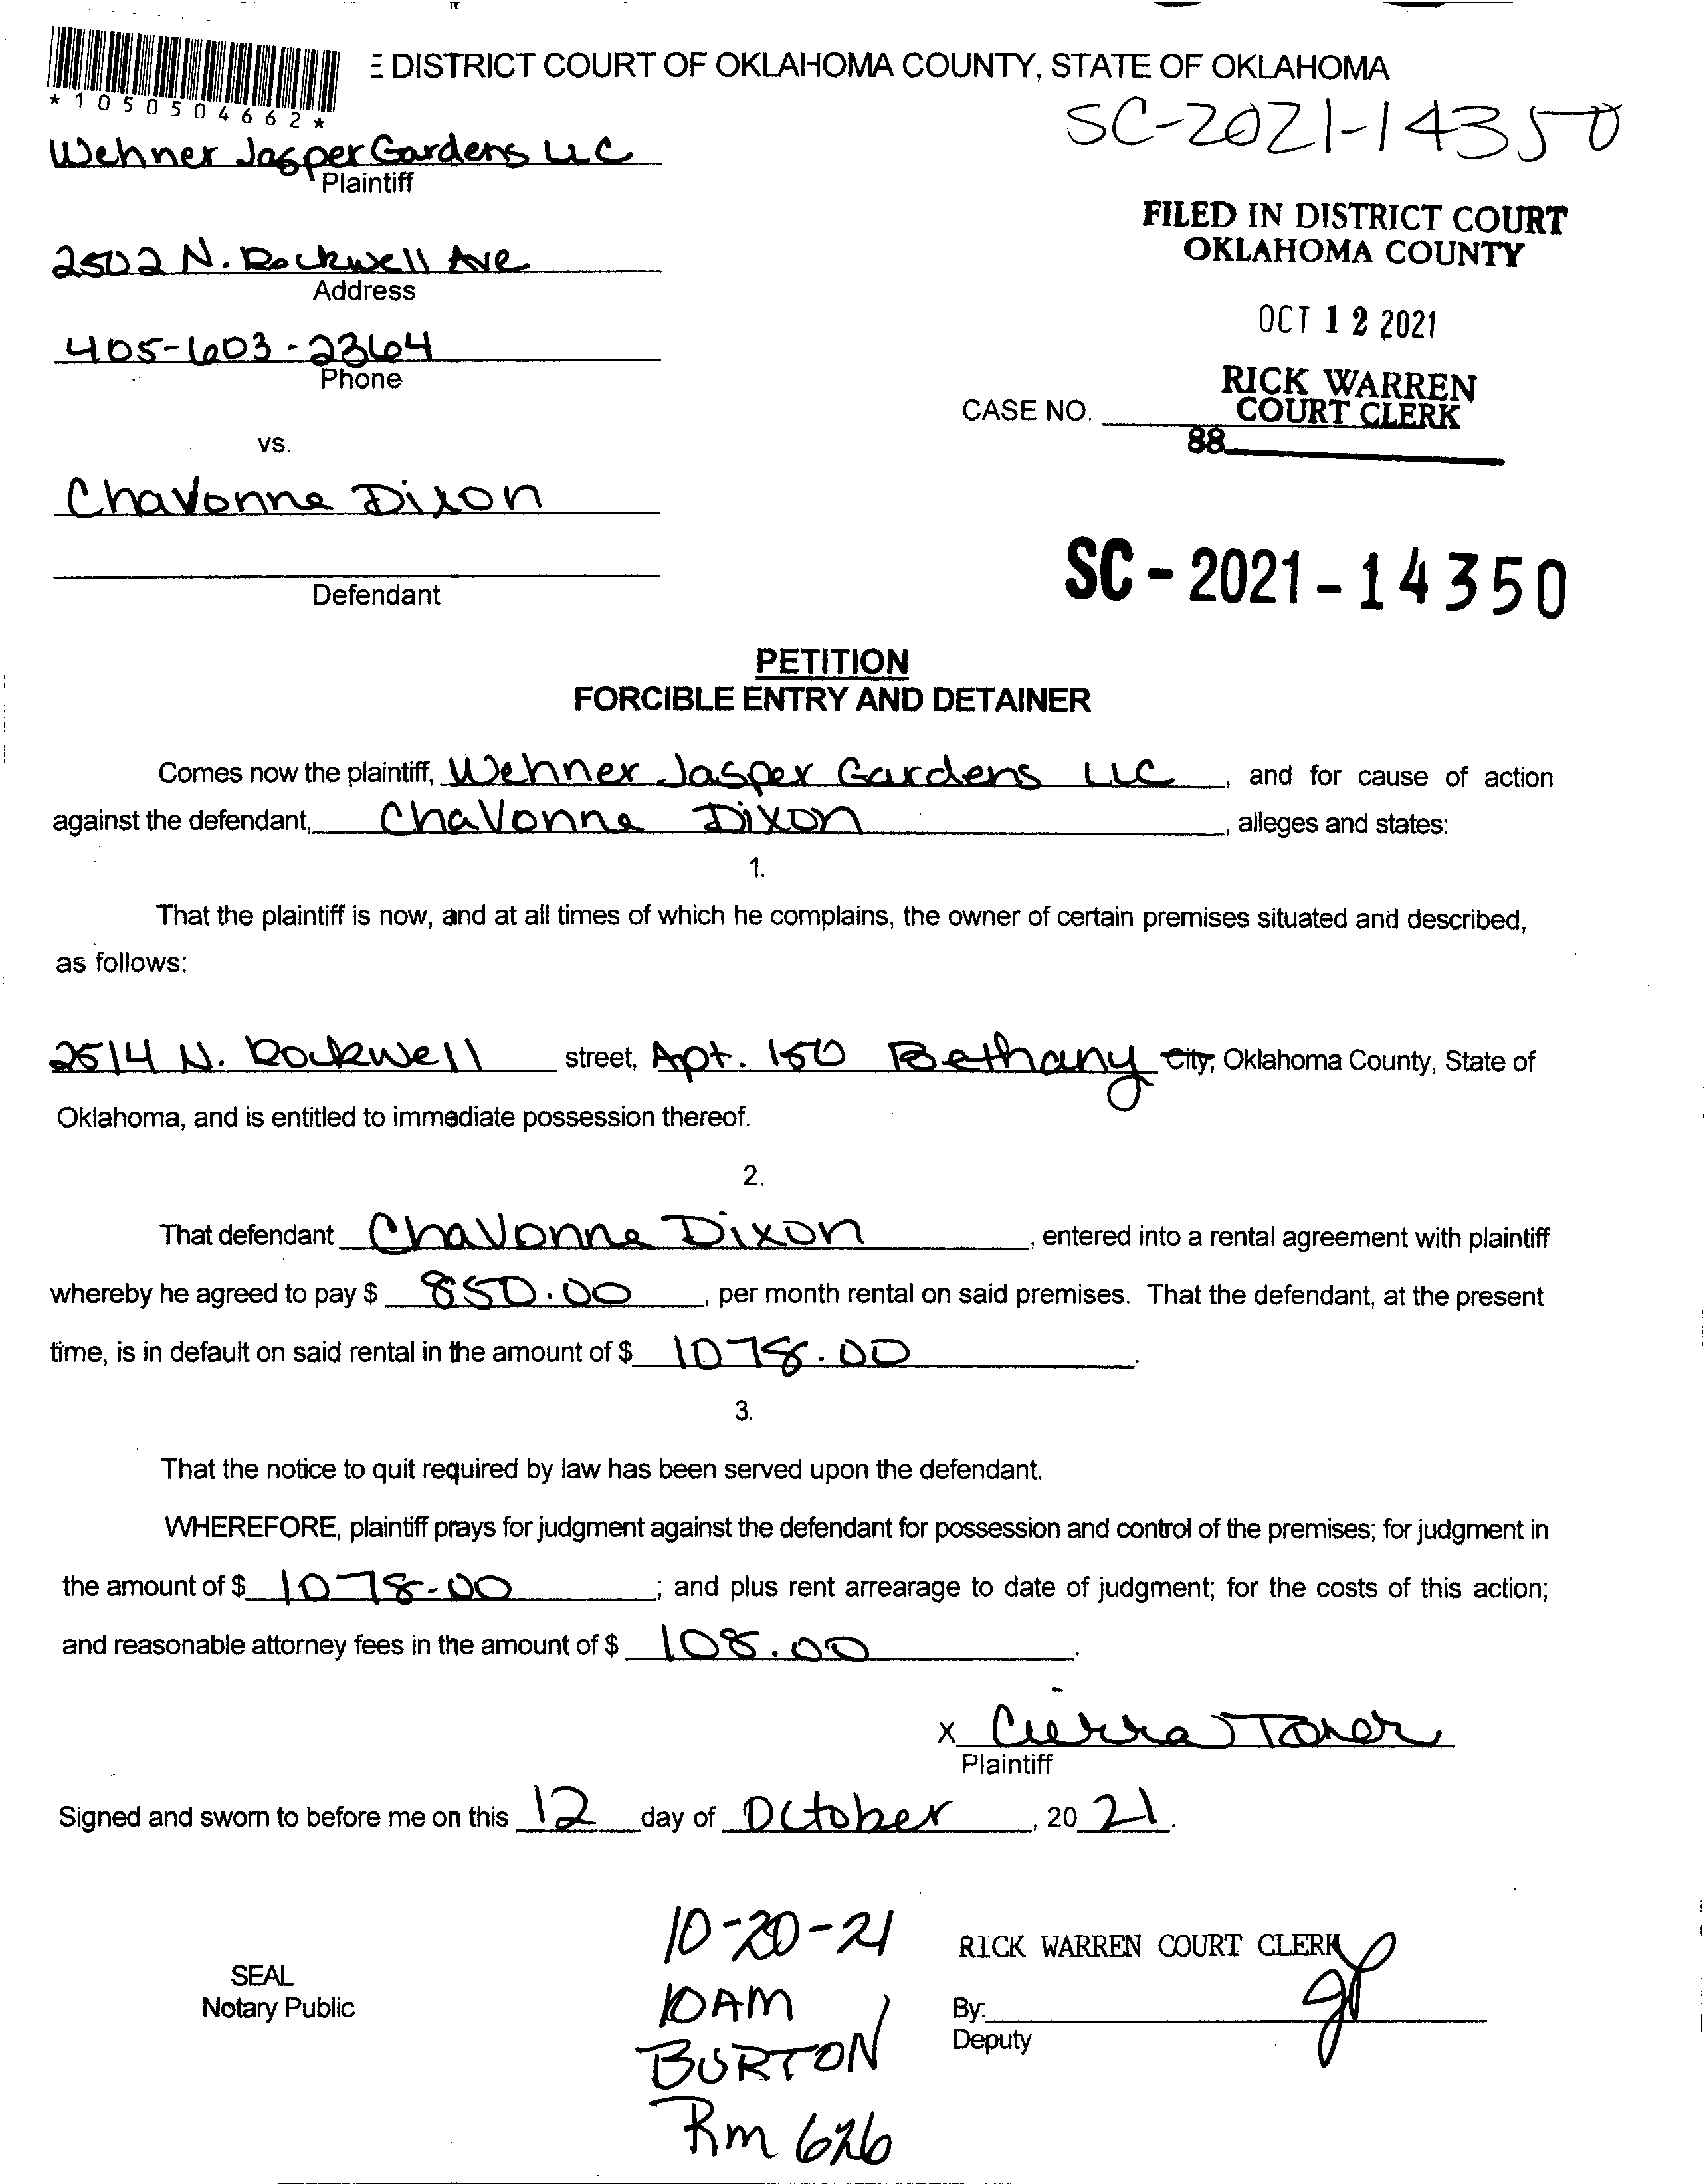 E DISTRICT COURT OF OKLAHOMA COUNTY, STATE OF OKLAHOMA
*1050504662*
SC-2021-14350
Wehner Jasper Gardens LLC
Plaintiff
FILED IN DISTRICT COURT
OKLAHOMA COUNTY
2502 N. Rockwell Ave
Address
OCT 12 2021
405-603-2364
Phone
RICK WARREN
COURT CLERK
CASE NO.
88
vs.
Chavonne Dixon
Defendant
SC-2021-14350
PETITION
FORCIBLE ENTRY AND DETAINER
Comes now the plaintiff, Wehner Jasper Gardens LLC, and for cause of action
against the defendant, Chavonne Dixon, alleges and states:
1.
That the plaintiff is now, and at all times of which he complains, the owner of certain premises situated and described,
as follows:
2514 N. Rockwell street, Apt. 150 Bethany City, Oklahoma County, State of
Oklahoma, and is entitled to immediate possession thereof.
2.
That defendant Chavonne Dixon, entered into a rental agreement with plaintiff
whereby he agreed to pay $ 850.00, per month rental on said premises. That the defendant, at the present
time, is in default on said rental in the amount of $ 1078.00.
3.
That the notice to quit required by law has been served upon the defendant.
WHEREFORE, plaintiff prays for judgment against the defendant for possession and control of the premises; for judgment in
the amount of $ 1078.00; and plus rent arrearage to date of judgment; for the costs of this action;
and reasonable attorney fees in the amount of $ 108.00.
X Cierra Toner
Plaintiff
Signed and sworn to before me on this 12 day of October, 2021.
10-20-21
RICK WARREN COURT CLERK
SEAL
Notary Public
10AM
By:
Deputy
BURTON
Rm 626